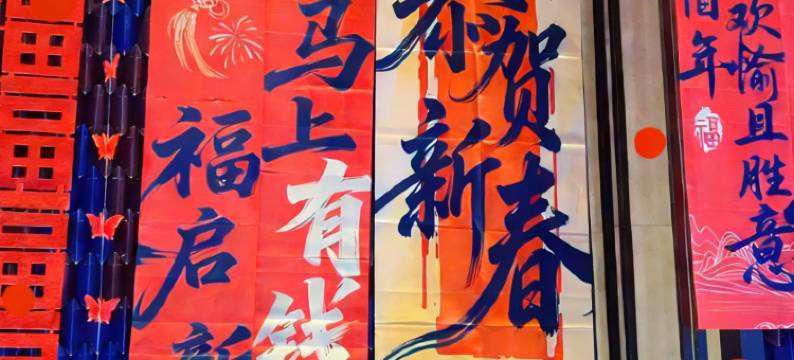 福启新
马上有钱
恭贺
新春
欢愉且胜意
年
福